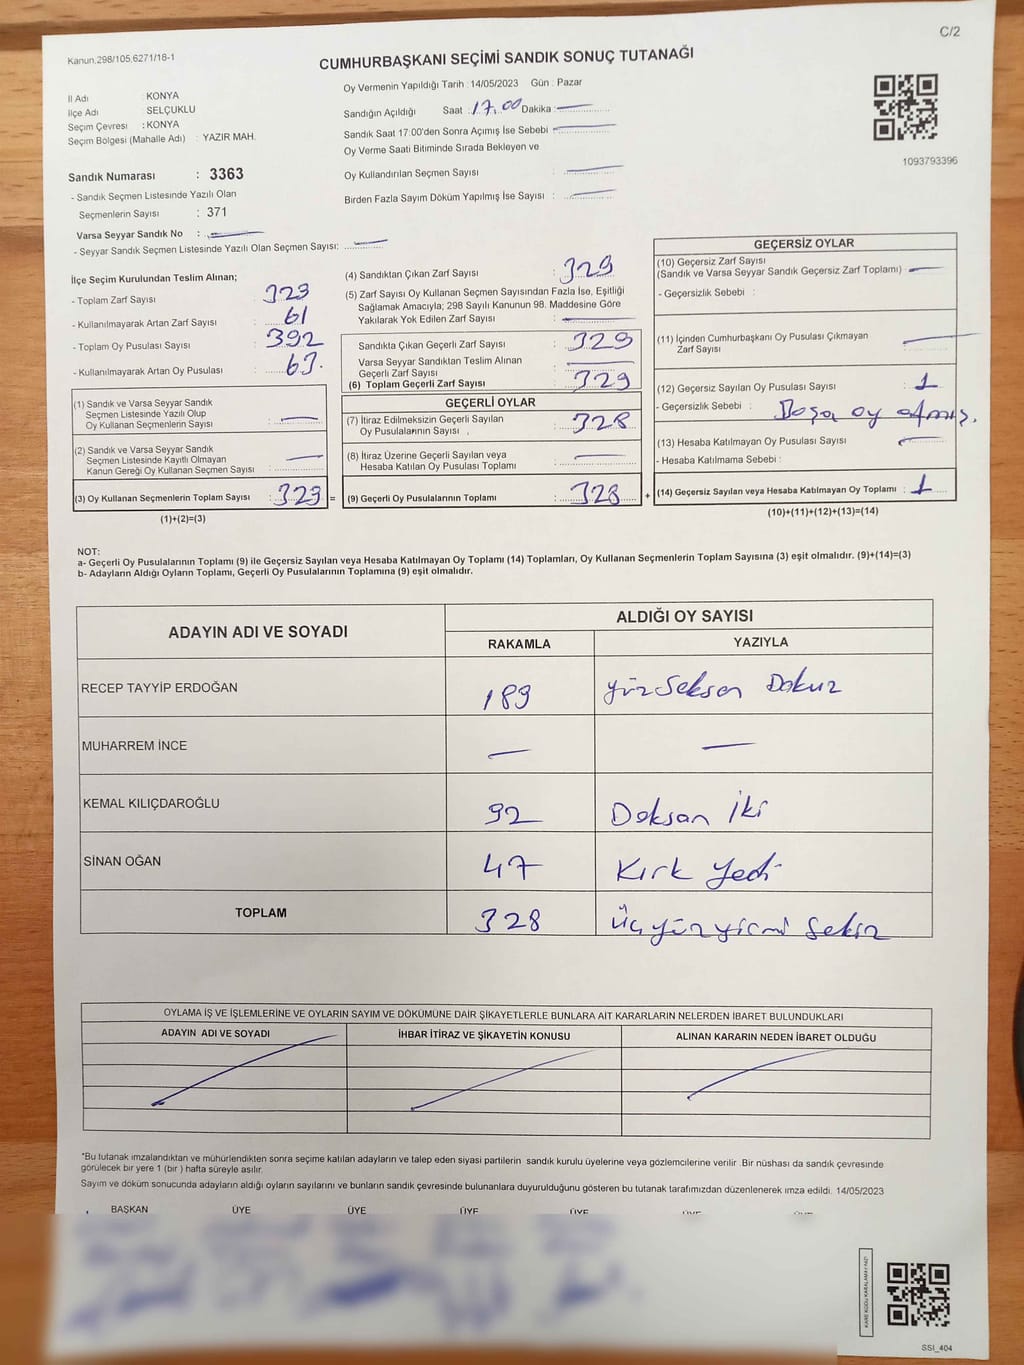 C/2
Kanun,298/105,6271/18-1
CUMHURBAŞKANI SEÇİMİ SANDIK SONUÇ TUTANAĞI
Oy Vermenin Yapıldığı Tarih : 14/05/2023 Gün : Pazar
İl Adı : KONYA
İlçe Adı : SELÇUKLU
Seçim Çevresi : KONYA
Seçim Bölgesi (Mahalle Adı) : YAZIR MAH.
Sandığın Açıldığı Saat : 17.00 Dakika : —
Sandık Saat 17:00'den Sonra Açımış İse Sebebi : —
Oy Verme Saati Bitiminde Sırada Bekleyen ve
Oy Kullandırılan Seçmen Sayısı : —
Birden Fazla Sayım Döküm Yapılmış İse Sayısı : —
1093793396
Sandık Numarası : 3363
- Sandık Seçmen Listesinde Yazılı Olan
Seçmenlerin Sayısı : 371
Varsa Seyyar Sandık No : —
- Seyyar Sandık Seçmen Listesinde Yazılı Olan Seçmen Sayısı: —
İlçe Seçim Kurulundan Teslim Alınan;
- Toplam Zarf Sayısı : 329
- Kullanılmayarak Artan Zarf Sayısı : 61
- Toplam Oy Pusulası Sayısı : 392
- Kullanılmayarak Artan Oy Pusulası : 63.
(1) Sandık ve Varsa Seyyar Sandık
Seçmen Listesinde Yazılı Olup
Oy Kullanan Seçmenlerin Sayısı : —
(2) Sandık ve Varsa Seyyar Sandık
Seçmen Listesinde Kayıtlı Olmayan
Kanun Gereği Oy Kullanan Seçmen Sayısı : —
(3) Oy Kullanan Seçmenlerin Toplam Sayısı : 329 =
(1)+(2)=(3)
(4) Sandıktan Çıkan Zarf Sayısı : 329
(5) Zarf Sayısı Oy Kullanan Seçmen Sayısından Fazla İse, Eşitliği
Sağlamak Amacıyla; 298 Sayılı Kanunun 98. Maddesine Göre
Yakılarak Yok Edilen Zarf Sayısı : —
Sandıkta Çıkan Geçerli Zarf Sayısı : 329
Varsa Seyyar Sandıktan Teslim Alınan
Geçerli Zarf Sayısı : —
(6) Toplam Geçerli Zarf Sayısı : 329
GEÇERLİ OYLAR
(7) İtiraz Edilmeksizin Geçerli Sayılan
Oy Pusulalarının Sayısı : 328
(8) İtiraz Üzerine Geçerli Sayılan veya
Hesaba Katılan Oy Pusulası Toplamı : —
(9) Geçerli Oy Pusulalarının Toplamı : 328 +
GEÇERSİZ OYLAR
(10) Geçersiz Zarf Sayısı
(Sandık ve Varsa Seyyar Sandık Geçersiz Zarf Toplamı) : —
- Geçersizlik Sebebi :
(11) İçinden Cumhurbaşkanı Oy Pusulası Çıkmayan
Zarf Sayısı : —
(12) Geçersiz Sayılan Oy Pusulası Sayısı : 1
- Geçersizlik Sebebi : Boşa oy atmış.
(13) Hesaba Katılmayan Oy Pusulası Sayısı : —
- Hesaba Katılmama Sebebi :
(14) Geçersiz Sayılan veya Hesaba Katılmayan Oy Toplamı : 1
(10)+(11)+(12)+(13)=(14)
NOT:
a- Geçerli Oy Pusulalarının Toplamı (9) ile Geçersiz Sayılan veya Hesaba Katılmayan Oy Toplamı (14) Toplamları, Oy Kullanan Seçmenlerin Toplam Sayısına (3) eşit olmalıdır. (9)+(14)=(3)
b- Adayların Aldığı Oyların Toplamı, Geçerli Oy Pusulalarının Toplamına (9) eşit olmalıdır.
ADAYIN ADI VE SOYADI
ALDIĞI OY SAYISI
RAKAMLA YAZIYLA
RECEP TAYYİP ERDOĞAN 189 yüz Seksen Dokuz
MUHARREM İNCE — —
KEMAL KILIÇDAROĞLU 92 Doksan İki
SİNAN OĞAN 47 Kırk Yedi
TOPLAM 328 Üçyüzyirmi Sekiz
OYLAMA İŞ VE İŞLEMLERİNE VE OYLARIN SAYIM VE DÖKÜMÜNE DAİR ŞİKAYETLERLE BUNLARA AİT KARARLARIN NELERDEN İBARET BULUNDUKLARI
ADAYIN ADI VE SOYADI İHBAR İTİRAZ VE ŞİKAYETİN KONUSU ALINAN KARARIN NEDEN İBARET OLDUĞU
*Bu tutanak imzalandıktan ve mühürlendikten sonra seçime katılan adayların ve talep eden siyasi partilerin sandık kurulu üyelerine veya gözlemcilerine verilir. Bir nüshası da sandık çevresinde
görülecek bir yere 1 (bir ) hafta süreyle asılır.
Sayım ve döküm sonucunda adayların aldığı oyların sayılarını ve bunların sandık çevresinde bulunanlara duyurulduğunu gösteren bu tutanak tarafımızdan düzenlenerek imza edildi. 14/05/2023
BAŞKAN ÜYE ÜYE ÜYE ÜYE
KARE KODU KARALAMAYINIZ!
SSI_404